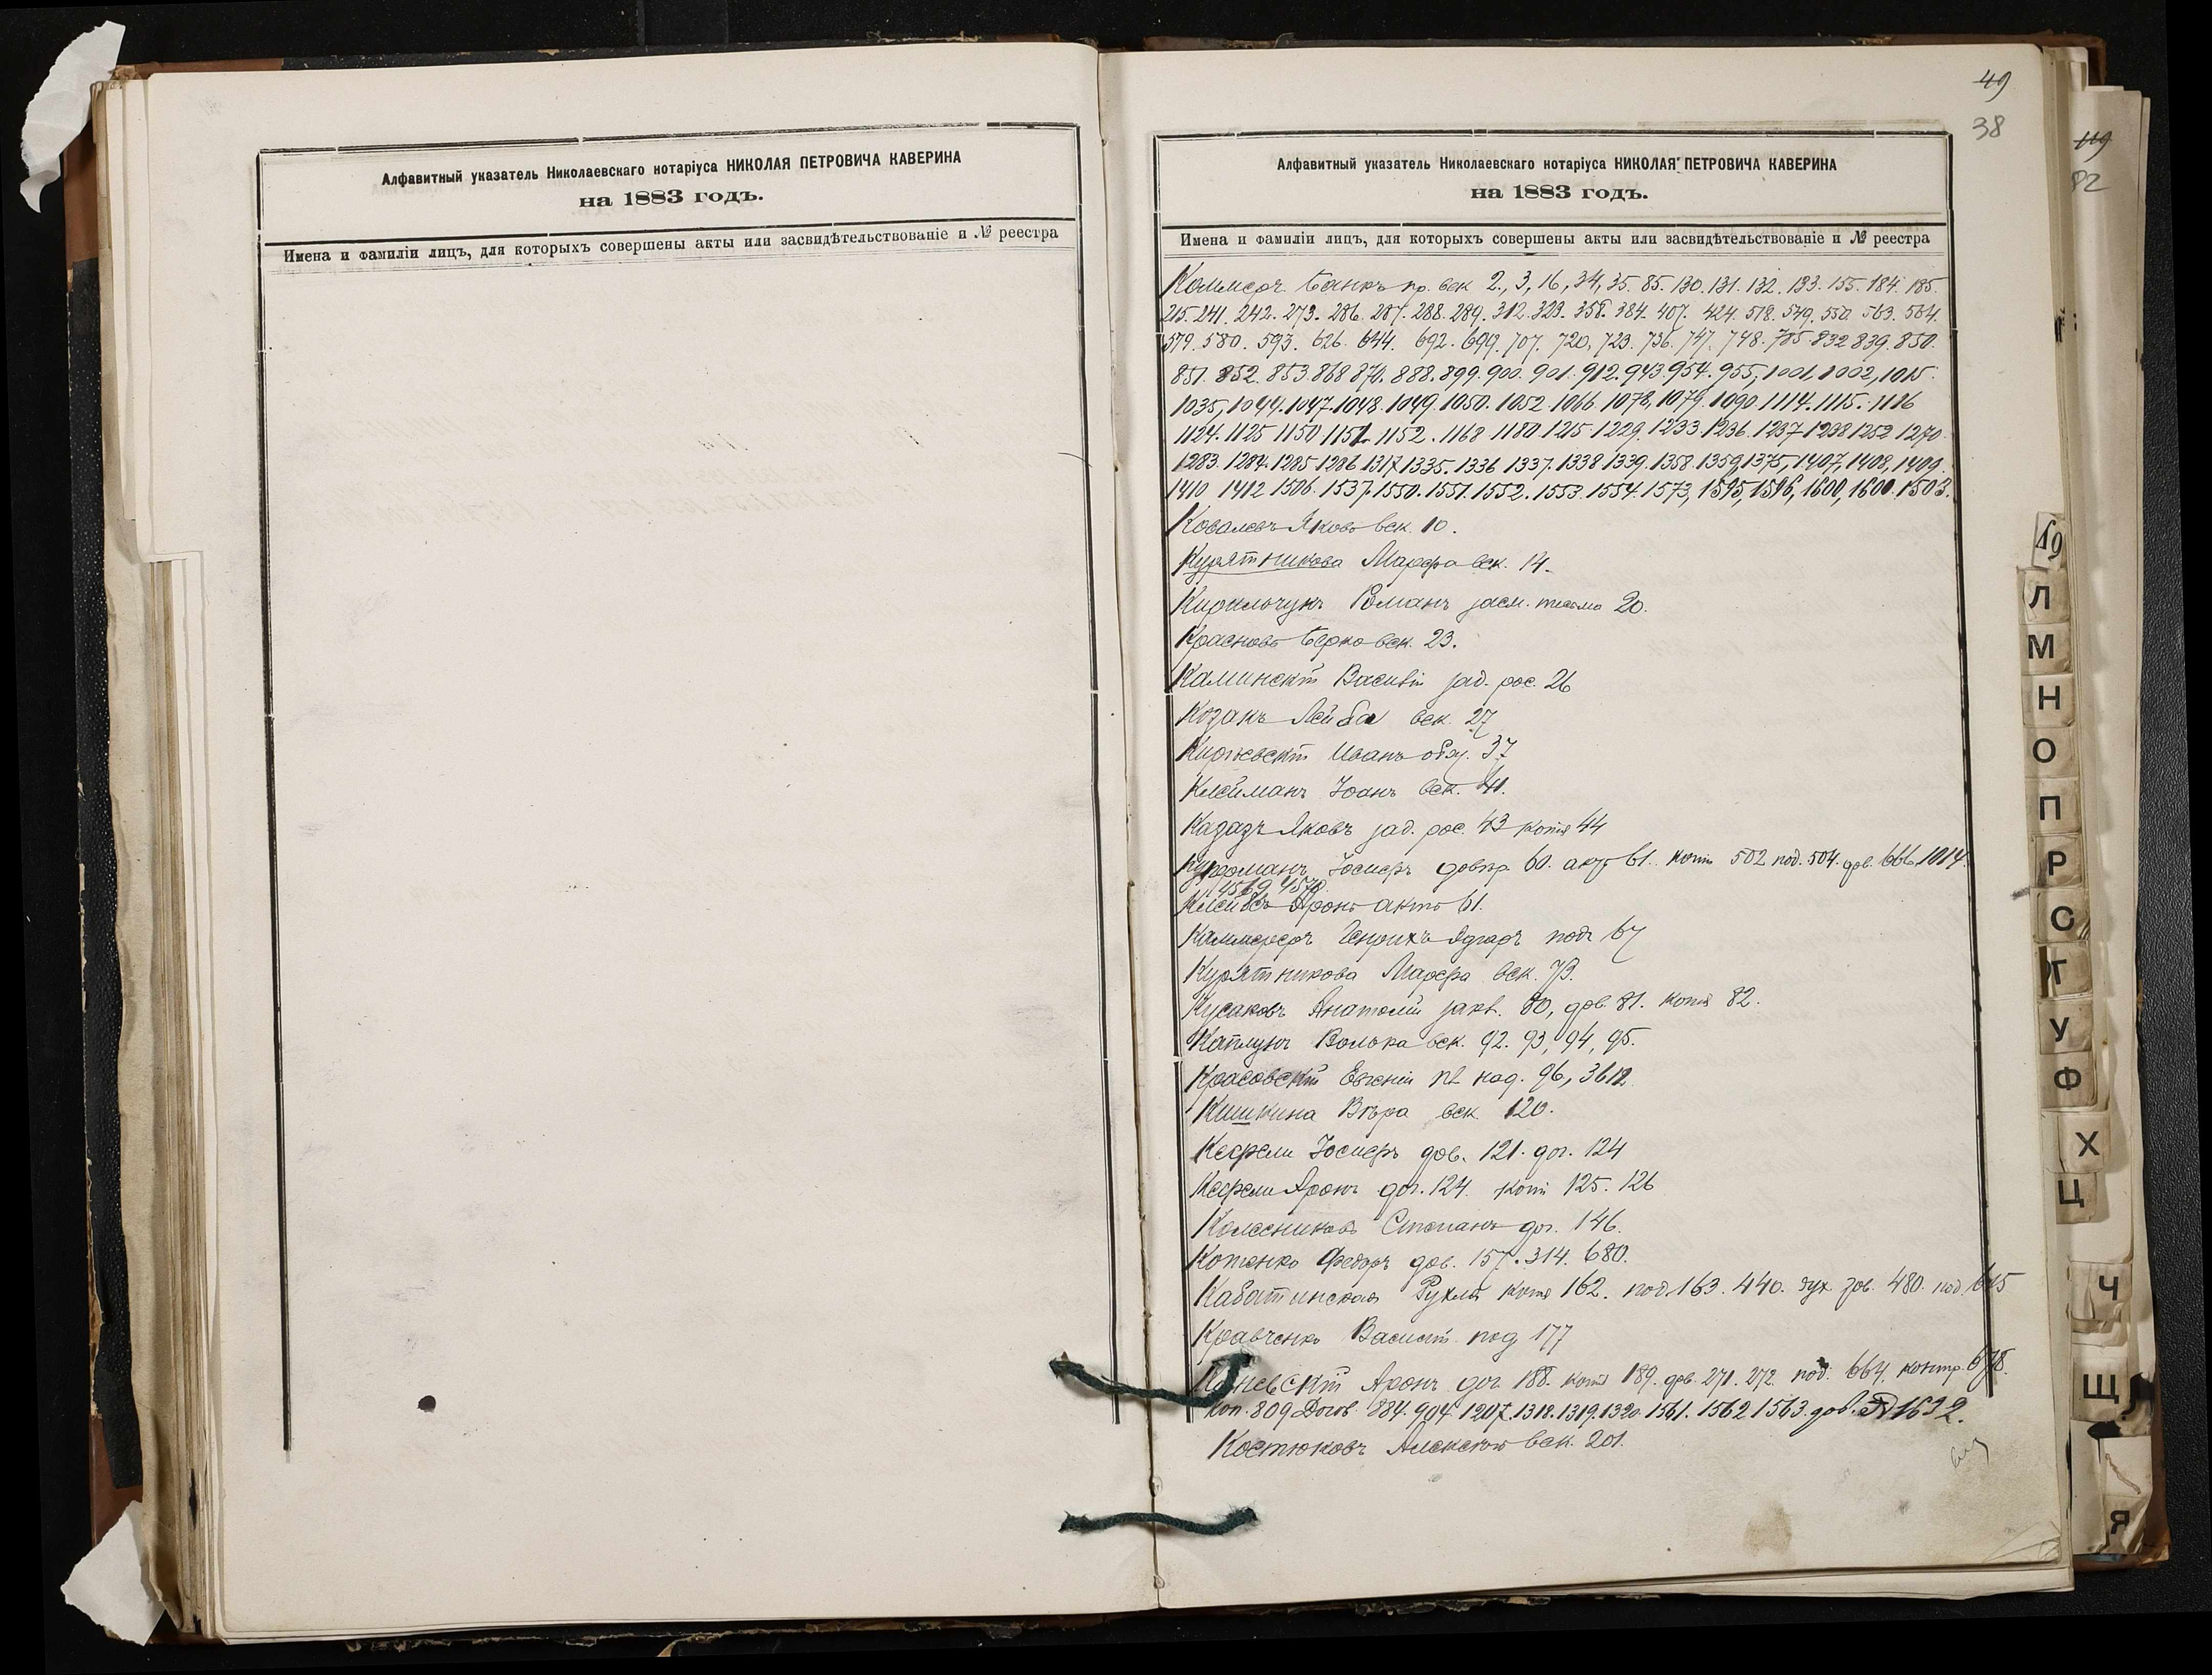 Алфавитный указатель Николаевскаго нотаріуса НИКОЛАЯ ПЕТРОВИЧА КАВЕРИНА
на 1883 годъ.
Имена и фамиліи лицъ, для которыхъ совершены акты или засвидѣтельствованіе и № реестра
49
38
Алфавитный указатель Николаевскаго нотаріуса НИКОЛАЯ ПЕТРОВИЧА КАВЕРИНА
на 1883 годъ.
Имена и фамиліи лицъ, для которыхъ совершены акты или засвидѣтельствованіе и № реестра
Коммерч. банкъ пр. век 2., 3, 16, 34, 35. 85. 130. 131. 132. 133. 155. 184. 185.
215. 241. 242. 273. 286. 287. 288. 289. 312. 323. 358. 384. 407. 424. 518. 549. 550 563. 564.
579. 580. 593. 626. 644. 692. 699. 707. 720, 723. 736. 747. 748. 785. 832 839. 850.
851. 852. 853 868 870. 888. 899. 900. 901. 912. 943. 954. 955, 1001, 1002, 1015.
1035, 1044. 1047. 1048. 1049. 1050. 1052. 1066 1078, 1079. 1090 1114. 1115. 1116
1124. 1125 1150 1151. 1152. 1168 1180. 1215. 1229. 1233. 1236. 1237 1238 1252 1270.
1283. 1284. 1285 1286 1317 1335. 1336 1337. 1338 1339. 1358. 1359, 1375, 1407, 1408, 1409.
1410 1412 1506. 1537. 1550. 1551. 1552. 1553. 1554. 1573, 1595, 1596, 1600, 1600. 1503.
Ковалевъ Яковъ век. 10.
Курятникова Марфа век. 14.
Кирильчукъ Романъ 20.
Красновъ Берко век. 23.
Каминскій Василій зад. рос. 26
Козакъ Лейба век. 27
Киржевскій Иванъ обяз. 37
Клейманъ Іоанъ век. 41.
Казазъ Яковъ зад. рос. 43 копія 44
Іосифъ довѣр. 60. актъ 61. копія 502 под. 504. дов. 666. 1014.
1569, 1570.
Аронъ актъ 61.
Каммереръ Генрихъ Эдгаръ подъ 67
Курятникова Марфа век. 73.
Кусаковъ Анатолій заяв. 80, дов. 81. копія 82.
Каплунъ Волька век. 92. 93, 94, 95.
Красовскій Евгеній 96, 361
Кишкина Вѣра век. 120.
Кефели Іосифъ дов. 121. дог. 124
Кефели Аронъ дог. 124. копі 125. 126
Колесниковъ Степанъ дог. 146.
Котенко Федоръ дов. 157. 314. 680.
Кабатинская Рухля копія 162. под. 163. 440. дух. зав. 480. под. 645
Кравченко Василій под. 177
Каневскій Аронъ дог. 188. копія 189. дов. 271. 272. под. 664, контр. 678.
коп. 809 Догов. 884. 904. 1207. 1318. 1319. 1320. 1561. 1562 1563. дов. 1632.
Костюковъ Алексѣй век. 201.
119
82
Л
М
Н
О
П
Р
С
Т
У
Ф
Х
Ц
Ч
Щ
Я